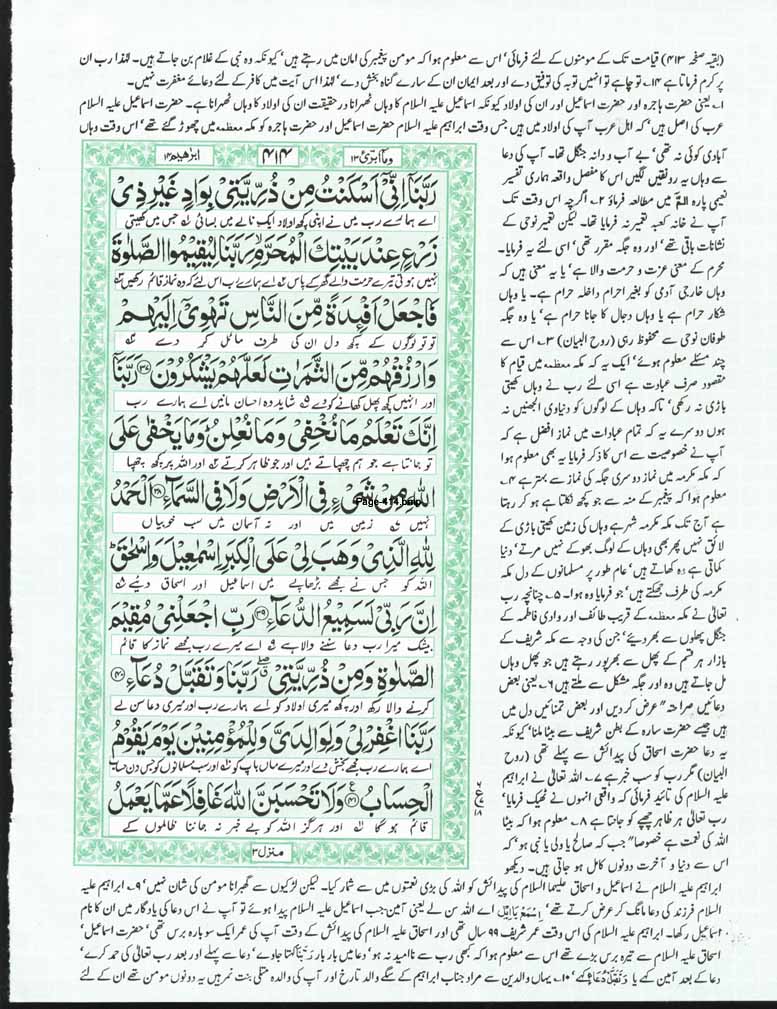 (بقیہ صفحہ ۴۱۳) قیامت تک کے مومنوں کے لئے فرمائی' اس سے معلوم ہوا کہ مومن پیغمبر کی امان میں رہتے ہیں' کیونکہ وہ نبی کے غلام بن جاتے ہیں۔ لہٰذا رب ان
پر کرم فرماتا ہے ۱۴۔ تو چاہے تو انہیں توبہ کی توفیق دے اور بعد ایمان ان کے سارے گناہ بخش دے' لہٰذا اس آیت میں کافر کے لئے دعائے مغفرت نہیں۔
۱۔ یعنی حضرت ہاجرہ اور حضرت اسماعیل اور ان کی اولاد کیونکہ اسماعیل علیہ السلام کا وہاں ٹھہرانا در حقیقت ان کی اولاد کا وہاں ٹھہرانا ہے۔ حضرت اسماعیل علیہ السلام
عرب کی اصل ہیں' کہ اہل عرب آپ کی اولاد میں ہیں جس وقت ابراہیم علیہ السلام حضرت اسماعیل اور حضرت ہاجرہ کو مکہ معظمہ میں چھوڑ گئے تھے' اس وقت وہاں
آبادی کوئی نہ تھی' بے آب و دانہ جنگل تھا۔ آپ کی دعا
سے وہاں یہ رونقیں لگیں اس کا مفصل واقعہ ہماری تفسیر
نعیمی پارہ الم میں مطالعہ فرماؤ ۲۔ اگرچہ اس وقت تک
آپ نے خانہ کعبہ تعمیر نہ فرمایا تھا۔ لیکن تعمیر نوحی کے
نشانات باقی تھے' اور وہ جگہ مقرر تھی' اسی لئے یہ فرمایا۔
محرم کے معنی عزت و حرمت والا ہے' یا یہ معنی ہیں کہ
وہاں خارجی آدمی کو بغیر احرام داخلہ حرام ہے۔ یا وہاں
شکار حرام ہے یا وہاں دجال کا جانا حرام ہے' یا وہ جگہ
طوفان نوحی سے محفوظ رہی (روح البیان) ۳۔ اس سے
چند مسئلے معلوم ہوئے' ایک یہ کہ مکہ معظمہ میں قیام کا
مقصود صرف عبادت ہے اسی لئے رب نے وہاں کھیتی
باڑی نہ رکھی' تاکہ وہاں کے لوگوں کو دنیاوی الجھنیں نہ
ہوں دوسرے یہ کہ تمام عبادات میں نماز افضل ہے کہ
آپ نے خصوصیت سے اس کا ذکر فرمایا یہ بھی معلوم ہوا
کہ مکہ مکرمہ میں نماز دوسری جگہ کی نماز سے بہتر ہے ۴۔
معلوم ہوا کہ پیغمبر کے منہ سے جو کچھ نکلتا ہے ہو کر رہتا
ہے آج تک مکہ مکرمہ شہر ہے وہاں کی زمین کھیتی باڑی کے
لائق نہیں پھر بھی وہاں کے لوگ بھوکے نہیں مرتے' دنیا
کماتی ہے وہ کھاتے ہیں' عام طور پر مسلمانوں کے دل مکہ
مکرمہ کی طرف جھکتے ہیں' جو فرمایا وہ ہوا۔ ۵۔ چنانچہ رب
تعالیٰ نے مکہ معظمہ کے قریب طائف اور وادی فاطمہ کے
جنگل پھلوں سے بھر دیئے' جن کی وجہ سے مکہ شریف کے
بازار ہر قسم کے پھل سے بھرپور رہتے ہیں جو پھل وہاں
مل جاتے ہیں وہ اور جگہ مشکل سے ملتے ہیں ۶۔ یعنی بعض
دعائیں صراحۃً عرض کر دیں اور بعض تمنائیں دل میں
ہیں جیسے حضرت سارہ کے بطن شریف سے بیٹا ملنا' کیونکہ
یہ دعا حضرت اسحاق کی پیدائش سے پہلے تھی (روح
البیان) مگر رب کو سب خبر ہے ۷۔ اللہ تعالیٰ نے ابراہیم
علیہ السلام کی تائید فرمائی کہ واقعی انہوں نے ٹھیک فرمایا'
رب تعالیٰ ہر ظاہر چھپے کو جانتا ہے ۸۔ معلوم ہوا کہ بیٹا
اللہ کی نعمت ہے خصوصاً جب کہ صالح یا ولی یا نبی ہو' کہ
اس سے دنیا و آخرت دونوں کامل ہو جاتی ہیں۔ دیکھو
وما ابرئ ۱۳
۴۱۴
ابراهیم ۱۴
رَبَّنَاۤ اِنِّیۡۤ اَسْكَنْتُ مِنْ ذُرِّیَّتِیْ بِوَادٍ غَیْرِ ذِیْ
اے ہمارے رب میں نے اپنی کچھ اولاد ایک نالے میں بسائی ۱ جس میں کھیتی
زَرْعٍ عِنْدَ بَیْتِكَ الْمُحَرَّمِۙ رَبَّنَا لِیُقِیْمُوا الصَّلٰوةَ
نہیں ہوتی تیرے حرمت والے گھر کے پاس ۲ اے ہمارے رب اس لئے کہ وہ نماز قائم رکھیں ۳
فَاجْعَلْ اَفْـِٕدَةً مِّنَ النَّاسِ تَهْوِیْۤ اِلَیْهِمْ
تو تو لوگوں کے کچھ دل ان کی طرف مائل کر دے ۴
وَارْزُقْهُمْ مِّنَ الثَّمَرٰتِ لَعَلَّهُمْ یَشْكُرُوْنَ ۳۷ رَبَّنَاۤ
اور انہیں کچھ پھل کھانے کو دے ۵ شاید وہ احسان مانیں اے ہمارے رب
اِنَّكَ تَعْلَمُ مَا نُخْفِیْ وَمَا نُعْلِنُؕ وَمَا یَخْفٰی عَلَی
تو جانتا ہے جو ہم چھپاتے ہیں اور جو ظاہر کرتے ۶ اور اللہ پر کچھ چھپا
اللّٰهِ مِنْ شَیْءٍ فِی الْاَرْضِ وَلَا فِی السَّمَآءِ ۳۸ اَلْحَمْدُ
Page-414.bmp
نہیں ۷ زمین میں اور نہ آسمان میں سب خوبیاں
لِلّٰهِ الَّذِیْ وَهَبَ لِیْ عَلَی الْكِبَرِ اِسْمٰعِیْلَ وَاِسْحٰقَؕ
اللہ کو جس نے مجھے بڑھاپے میں اسماعیل اور اسحاق دیئے ۸
اِنَّ رَبِّیْ لَسَمِیْعُ الدُّعَآءِ ۳۹ رَبِّ اجْعَلْنِیْ مُقِیْمَ
بیشک میرا رب دعا سننے والا ہے ۹ اے میرے رب مجھے نماز کا قائم
الصَّلٰوةِ وَمِنْ ذُرِّیَّتِیْۖ رَبَّنَا وَتَقَبَّلْ دُعَآءِ ۴۰
کرنے والا رکھ اور کچھ میری اولاد کو اے ہمارے رب اور میری دعا سن لے
رَبَّنَا اغْفِرْ لِیْ وَلِوَالِدَیَّ وَلِلْمُؤْمِنِیْنَ یَوْمَ یَقُوْمُ
اے ہمارے رب مجھے بخش دے اور میرے ماں باپ کو ۱۰ اور سب مسلمانوں کو جس دن حساب
الْحِسَابُ ۴۱ وَلَا تَحْسَبَنَّ اللّٰهَ غَافِلًا عَمَّا یَعْمَلُ
قائم ہوگا اور ہرگز اللہ کو بے خبر نہ جاننا ظالموں کے
۶
ع
۷
۱۸
منزل ۳
ابراہیم علیہ السلام نے اسماعیل و اسحاق علیہما السلام کی پیدائش کو اللہ کی بڑی نعمتوں میں سے شمار کیا۔ لیکن لڑکیوں سے گھبرانا مومن کی شان نہیں' ۹۔ ابراہیم علیہ
السلام فرزند کی دعا مانگ کر عرض کرتے تھے' اِسْمَعْ یَا اِیْل اے اللہ سن لے یعنی آمین' جب اسماعیل علیہ السلام پیدا ہوئے تو آپ نے اس دعا کی یادگار میں ان کا نام
اسماعیل رکھا۔ ابراہیم علیہ السلام کی اس وقت عمر شریف ۹۹ سال تھی اور اسحاق علیہ السلام کی پیدائش کے وقت آپ کی عمر ایک سو بارہ برس تھی' حضرت اسماعیل'
اسحاق علیہ السلام سے تیرہ برس بڑے تھے اس سے معلوم ہوا کہ کبھی رب سے ناامید نہ ہو' دعا میں بار بار رَبَّنَا کہتا جاوے' دعا سے پہلے اور بعد رب تعالیٰ کی حمد کرے'
دعا کے بعد آمین کہے یا وَتَقَبَّلْ دُعَآءِ کہے' ۱۰۔ یہاں والدین سے مراد جناب ابراہیم کے سگے والد تارخ اور آپ کی والدہ متلی بنت نمر ہیں یہ دونوں مومن تھے ان کے لئے